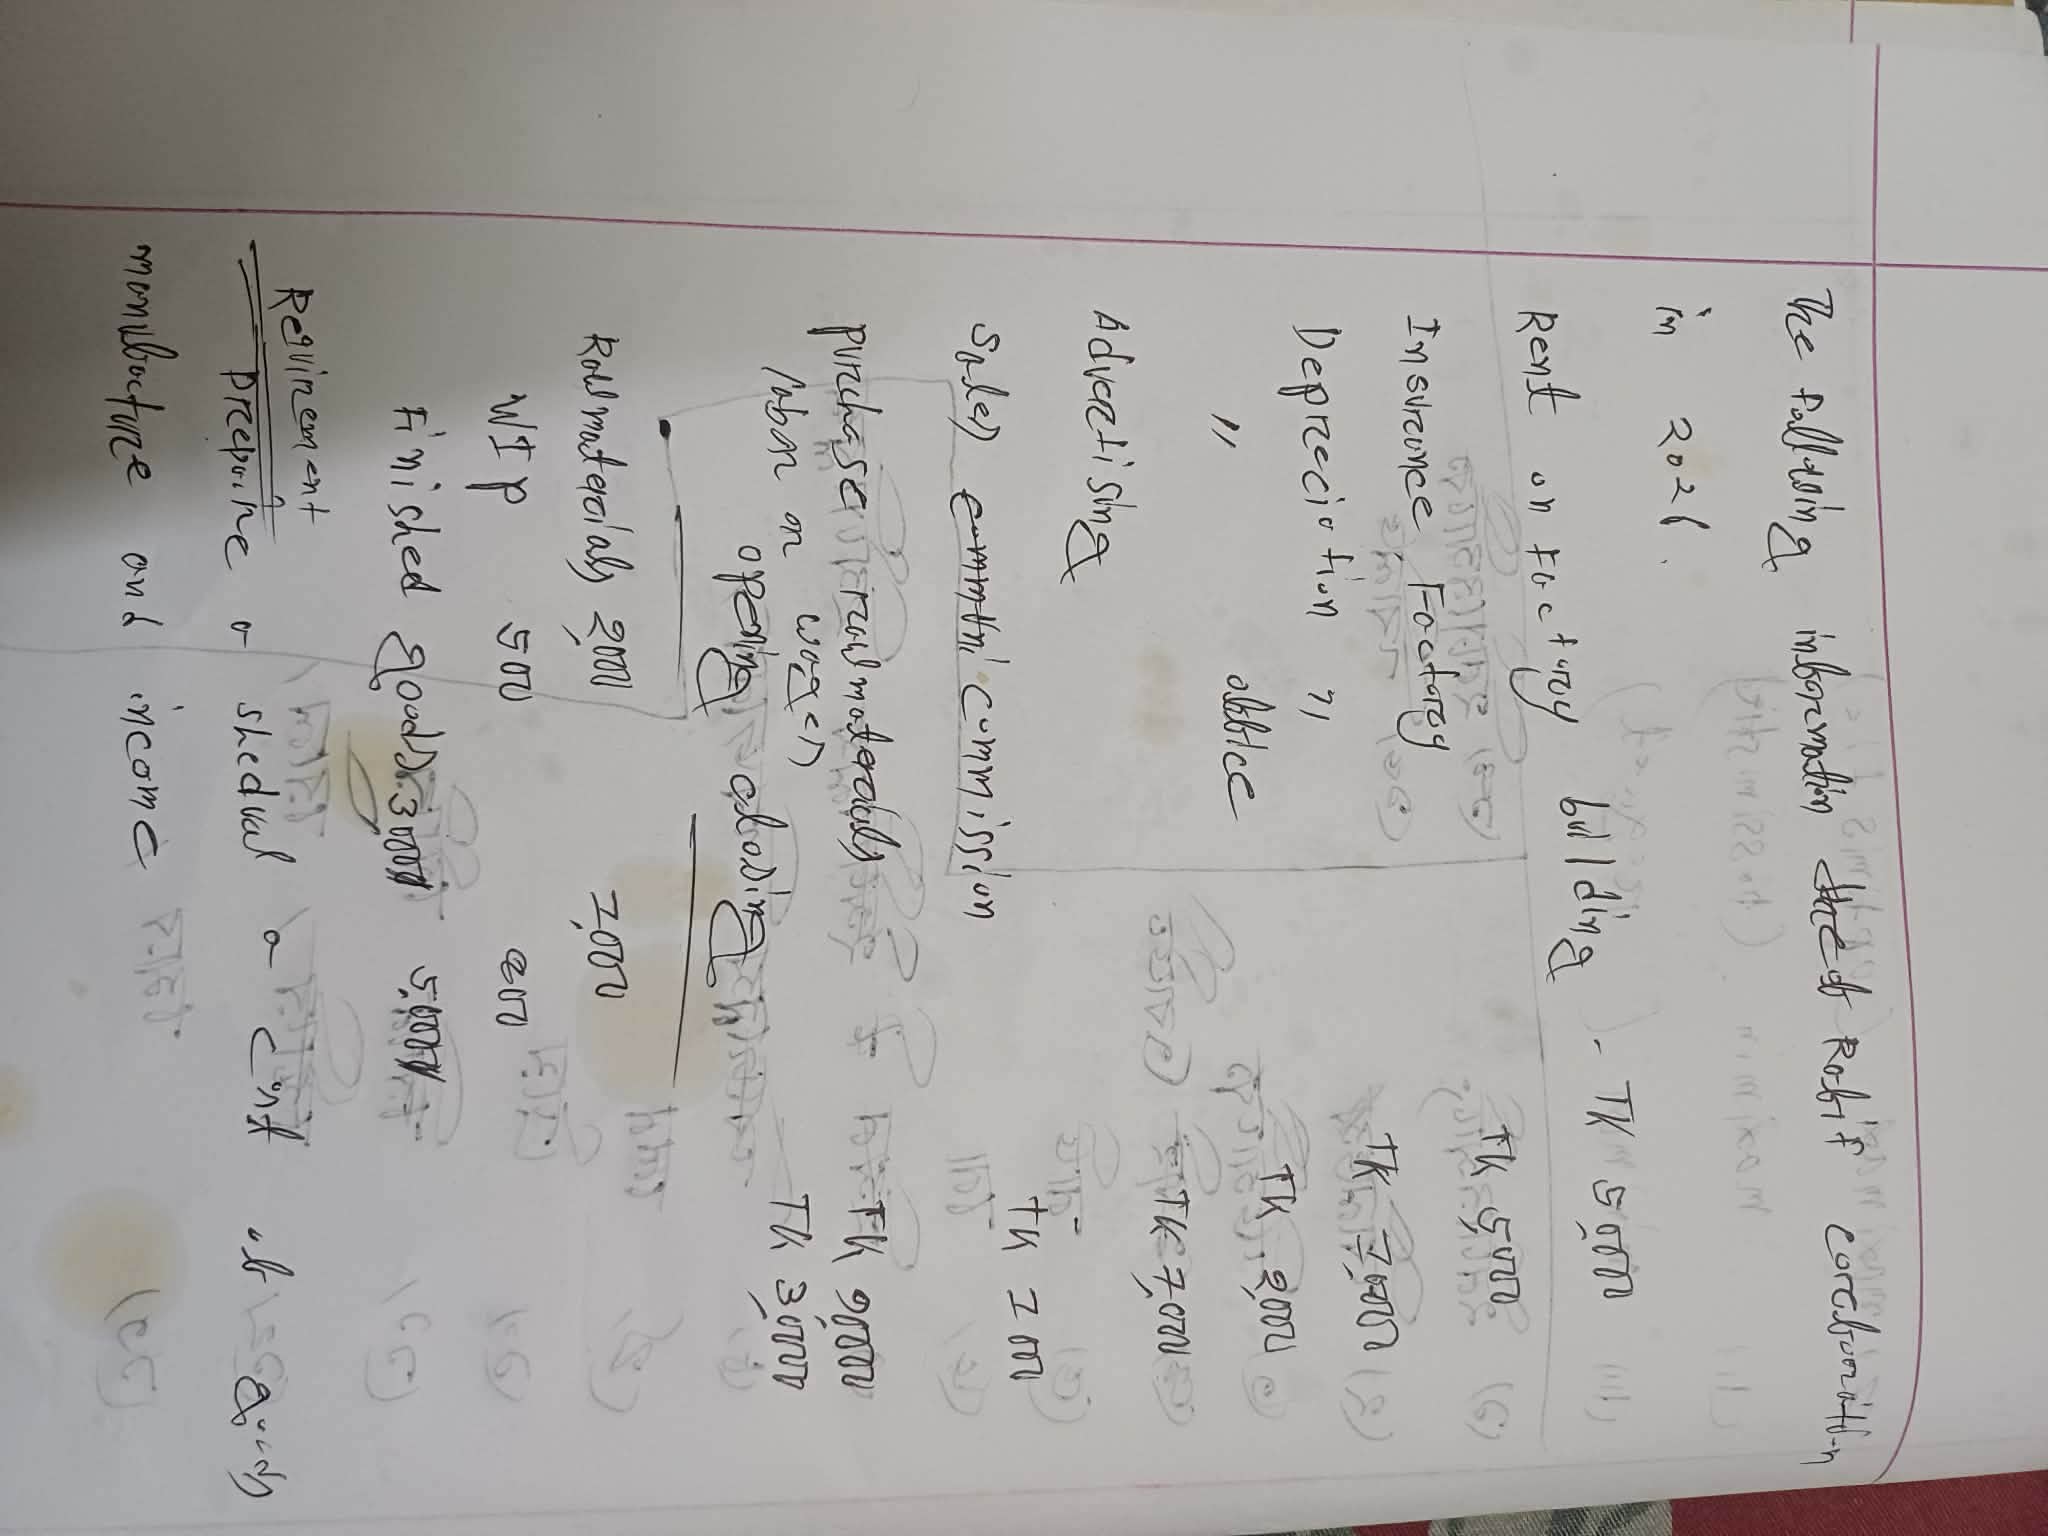 The following information the of Rabit Corcaboration
in 2021.
Rent on factury building - TK 5,000
Insurance Foctory TK 5,000
Deprecition " TK 7,000
" obbice TK 2,000
Advertising TK 7,000
Sales commission TK 700
purchase raw materials TK 90000
labor or wages TK 30000
opening closing
Raw materials 2,000 7,000
WIP 500 800
Finished goods 30000 5,000
Requirement
Prepare a shedual a cost of goods
monubocture and income